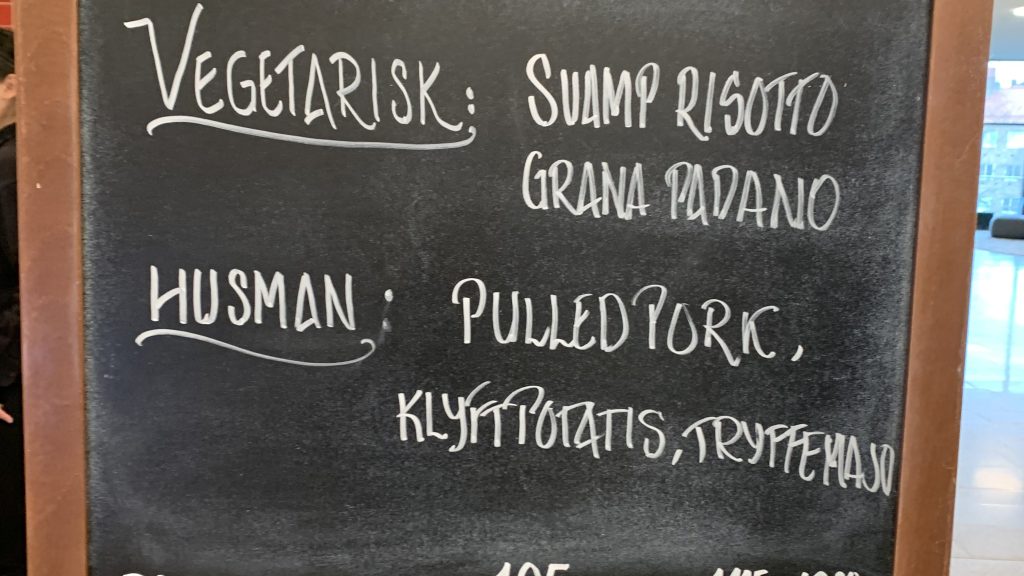 VEGETARISK: SVAMP RISOTTO
GRANA PADANO
HUSMAN: PULLED PORK,
KLYFTPOTATIS, TRYFFEMAJO